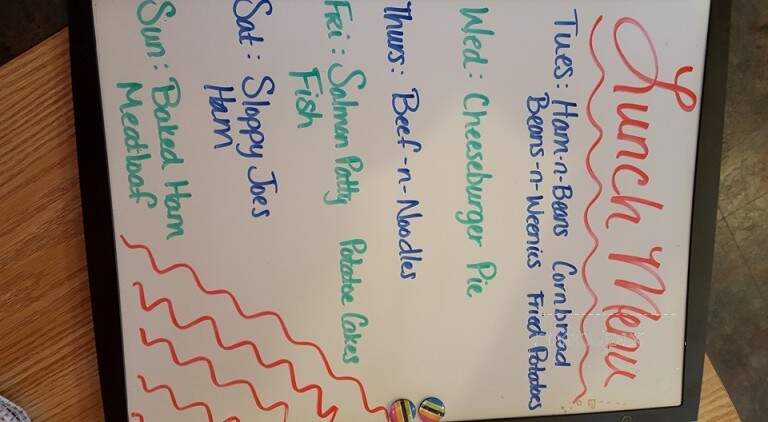 Lunch Menu
Tues: Ham-n-Beans Cornbread
Beans-n-Weenies Fried Potatoes
Wed: Cheeseburger Pie
Thurs: Beef-n-Noodles
Fri: Salmon Patty Potatoe Cakes
Fish
Sat: Sloppy Joes
Ham
Sun: Baked Ham
Meatloaf